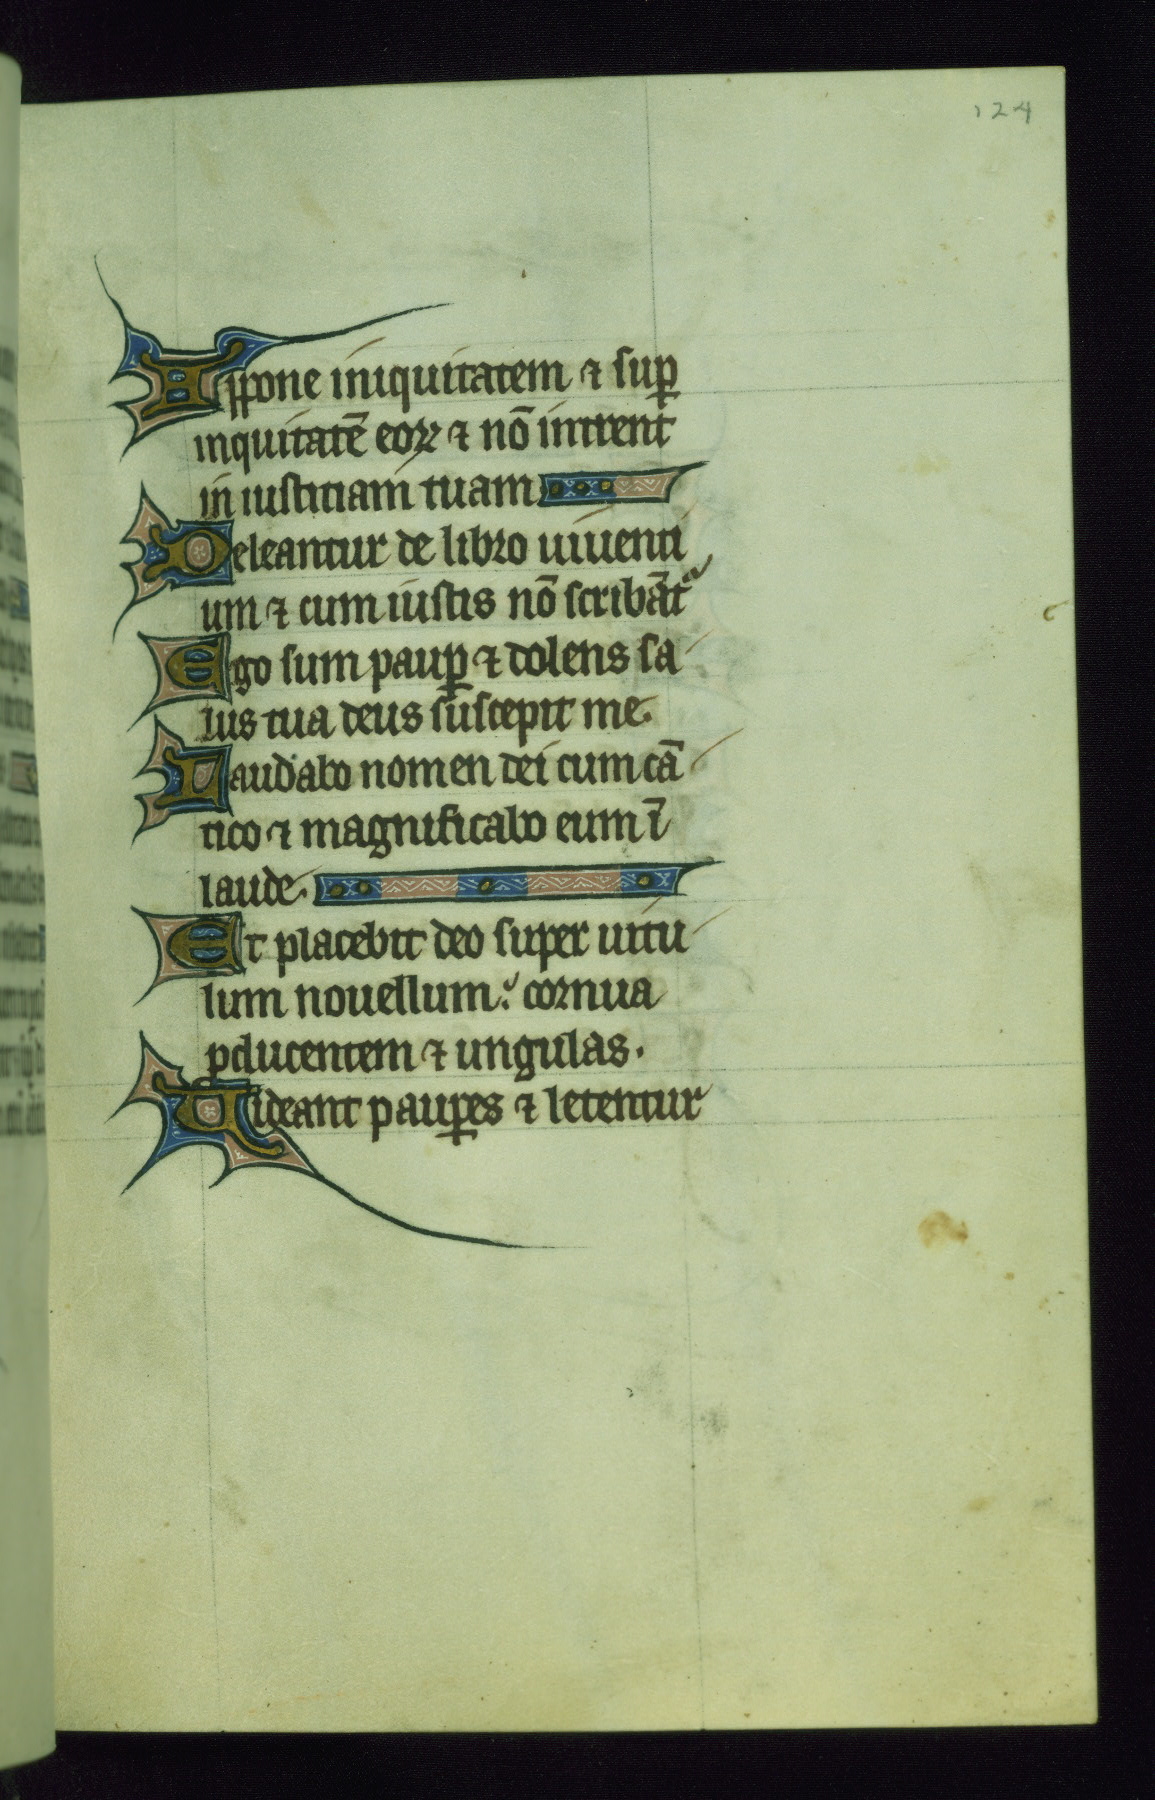 124
Appone iniquitatem ⁊ suꝑ
inquitatē eoꝝ ⁊ nō intrent
in iustitiam tuam
Deleantur de libro uiuenti
um ⁊ cum iustis nō scribāt᷑
Ego sum pauꝑ ⁊ dolens sa
lus tua deus suscepit me.
Laudabo nomen dei cum cā
tico ⁊ magnificabo eum ī
laude.
Et placebit deo super uitu
lum nouellum: cornua
ꝓducentem ⁊ ungulas.
Uideant pauꝑes ⁊ letentur